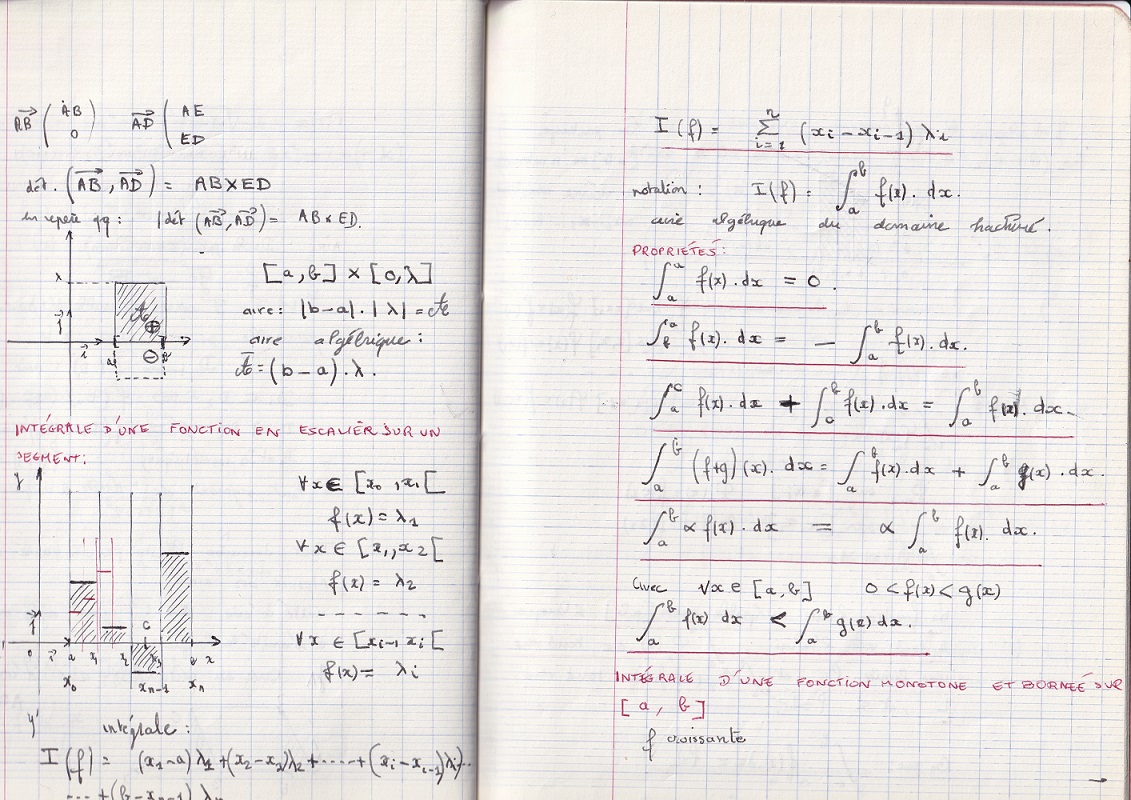 AB→ ( AB 0 ) AD→ ( AE ED
dét. (AB→, AD→) = AB×ED
en repère qq : |dét (AB→, AD→) = AB × ED.
[a, b] × [0, λ]
aire : |b-a| . |λ| = A
aire algébrique :
A̅ = (b-a) . λ.
λ
j→
A
⊕
i→
a
⊖
b
INTÉGRALE D'UNE FONCTION EN ESCALIER SUR UN
SEGMENT :
y
∀x ∈ [x₀, x₁[
f(x) = λ₁
∀x ∈ [x₁, x₂[
f(x) = λ₂
- - - - - -
∀x ∈ [xi-1 xi[
f(x) = λi
j→
c
0 i→ a x₁ x₂ b x
x₀ xn-1 xn
intégrale :
I(f) = (x₁-a) λ₁ + (x₂-x₁)λ₂ + ..... + (xi - xi-1) λi + ..
... + (b - xn-1) λn
I(f) = Σ i=1 n (xi - xi-1) λi
notation : I(f) = ∫ₐᵇ f(x) . dx.
aire algébrique du domaine hachuré.
PROPRIÉTÉS :
∫ₐᵃ f(x) . dx = 0.
∫_b^a f(x) . dx = - ∫ₐᵇ f(x) . dx.
∫ₐᶜ f(x) . dx + ∫_c^b f(x) . dx = ∫ₐᵇ f(x) . dx.
∫ₐᵇ (f+g)(x) . dx = ∫ₐᵇ f(x) . dx + ∫ₐᵇ g(x) . dx.
∫ₐᵇ α f(x) . dx = α ∫ₐᵇ f(x) . dx.
avec ∀x ∈ [a, b] 0 < f(x) < g(x)
∫ₐᵇ f(x) dx < ∫ₐᵇ g(x) dx.
INTÉGRALE D'UNE FONCTION MONOTONE ET BORNÉE SUR
[a, b]
f croissante
→